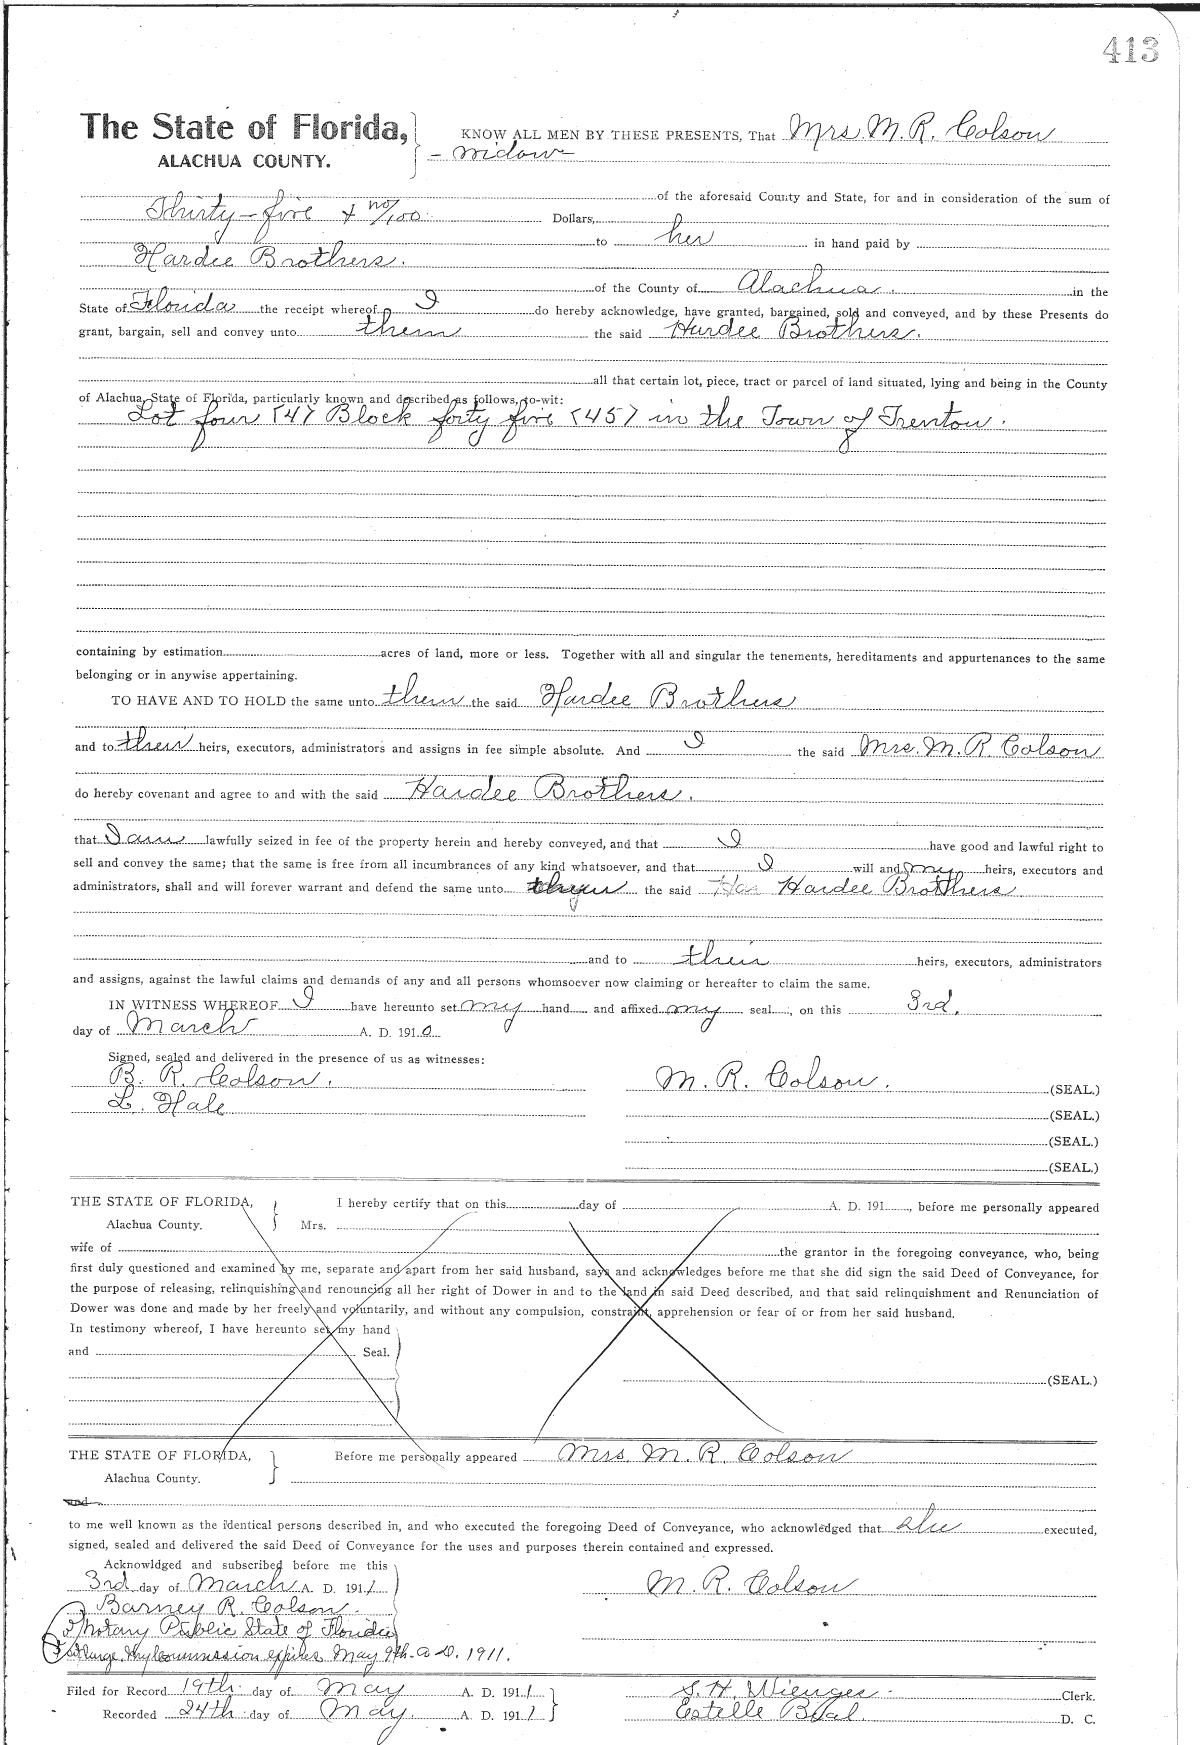 413
The State of Florida, KNOW ALL MEN BY THESE PRESENTS, That Mrs. M. R. Colson
ALACHUA COUNTY. - widow -
of the aforesaid County and State, for and in consideration of the sum of
Thirty-five + no/100 Dollars,
to her in hand paid by
Hardee Brothers.
of the County of Alachua. in the
State of Florida the receipt whereof I do hereby acknowledge, have granted, bargained, sold and conveyed, and by these Presents do
grant, bargain, sell and convey unto them the said Hardee Brothers.
all that certain lot, piece, tract or parcel of land situated, lying and being in the County
of Alachua, State of Florida, particularly known and described as follows, to-wit:
Lot four (4) Block forty five (45) in the Town of Trenton.
containing by estimation acres of land, more or less. Together with all and singular the tenements, hereditaments and appurtenances to the same
belonging or in anywise appertaining.
TO HAVE AND TO HOLD the same unto them the said Hardee Brothers
and to their heirs, executors, administrators and assigns in fee simple absolute. And I the said Mrs. M. R. Colson
do hereby covenant and agree to and with the said Hardee Brothers.
that I am lawfully seized in fee of the property herein and hereby conveyed, and that I have good and lawful right to
sell and convey the same; that the same is free from all incumbrances of any kind whatsoever, and that I will and my heirs, executors and
administrators, shall and will forever warrant and defend the same unto the said Har Hardee Brothers
and to their heirs, executors, administrators
and assigns, against the lawful claims and demands of any and all persons whomsoever now claiming or hereafter to claim the same.
IN WITNESS WHEREOF I have hereunto set my hand and affixed my seal, on this 3rd.
day of March A. D. 1910
Signed, sealed and delivered in the presence of us as witnesses:
B. R. Colson. M. R. Colson. (SEAL.)
L. Hale (SEAL.)
(SEAL.)
(SEAL.)
THE STATE OF FLORIDA, I hereby certify that on this day of A. D. 191 , before me personally appeared
Alachua County. Mrs.
wife of the grantor in the foregoing conveyance, who, being
first duly questioned and examined by me, separate and apart from her said husband, says and acknowledges before me that she did sign the said Deed of Conveyance, for
the purpose of releasing, relinquishing and renouncing all her right of Dower in and to the land in said Deed described, and that said relinquishment and Renunciation of
Dower was done and made by her freely and voluntarily, and without any compulsion, constraint, apprehension or fear of or from her said husband.
In testimony whereof, I have hereunto set my hand
and Seal.
(SEAL.)
THE STATE OF FLORIDA, Before me personally appeared Mrs. M. R. Colson
Alachua County.
and
to me well known as the identical persons described in, and who executed the foregoing Deed of Conveyance, who acknowledged that she executed,
signed, sealed and delivered the said Deed of Conveyance for the uses and purposes therein contained and expressed.
Acknowldged and subscribed before me this
3rd day of March A. D. 1911 M. R. Colson
Barney R. Colson.
Notary Public State of Florida
at large. My Commission expires May 9th A.D. 1911.
Filed for Record 19th day of May A. D. 1911 S. H. Wienges. Clerk.
Recorded 24th day of May. A. D. 1911 Estelle D. C.